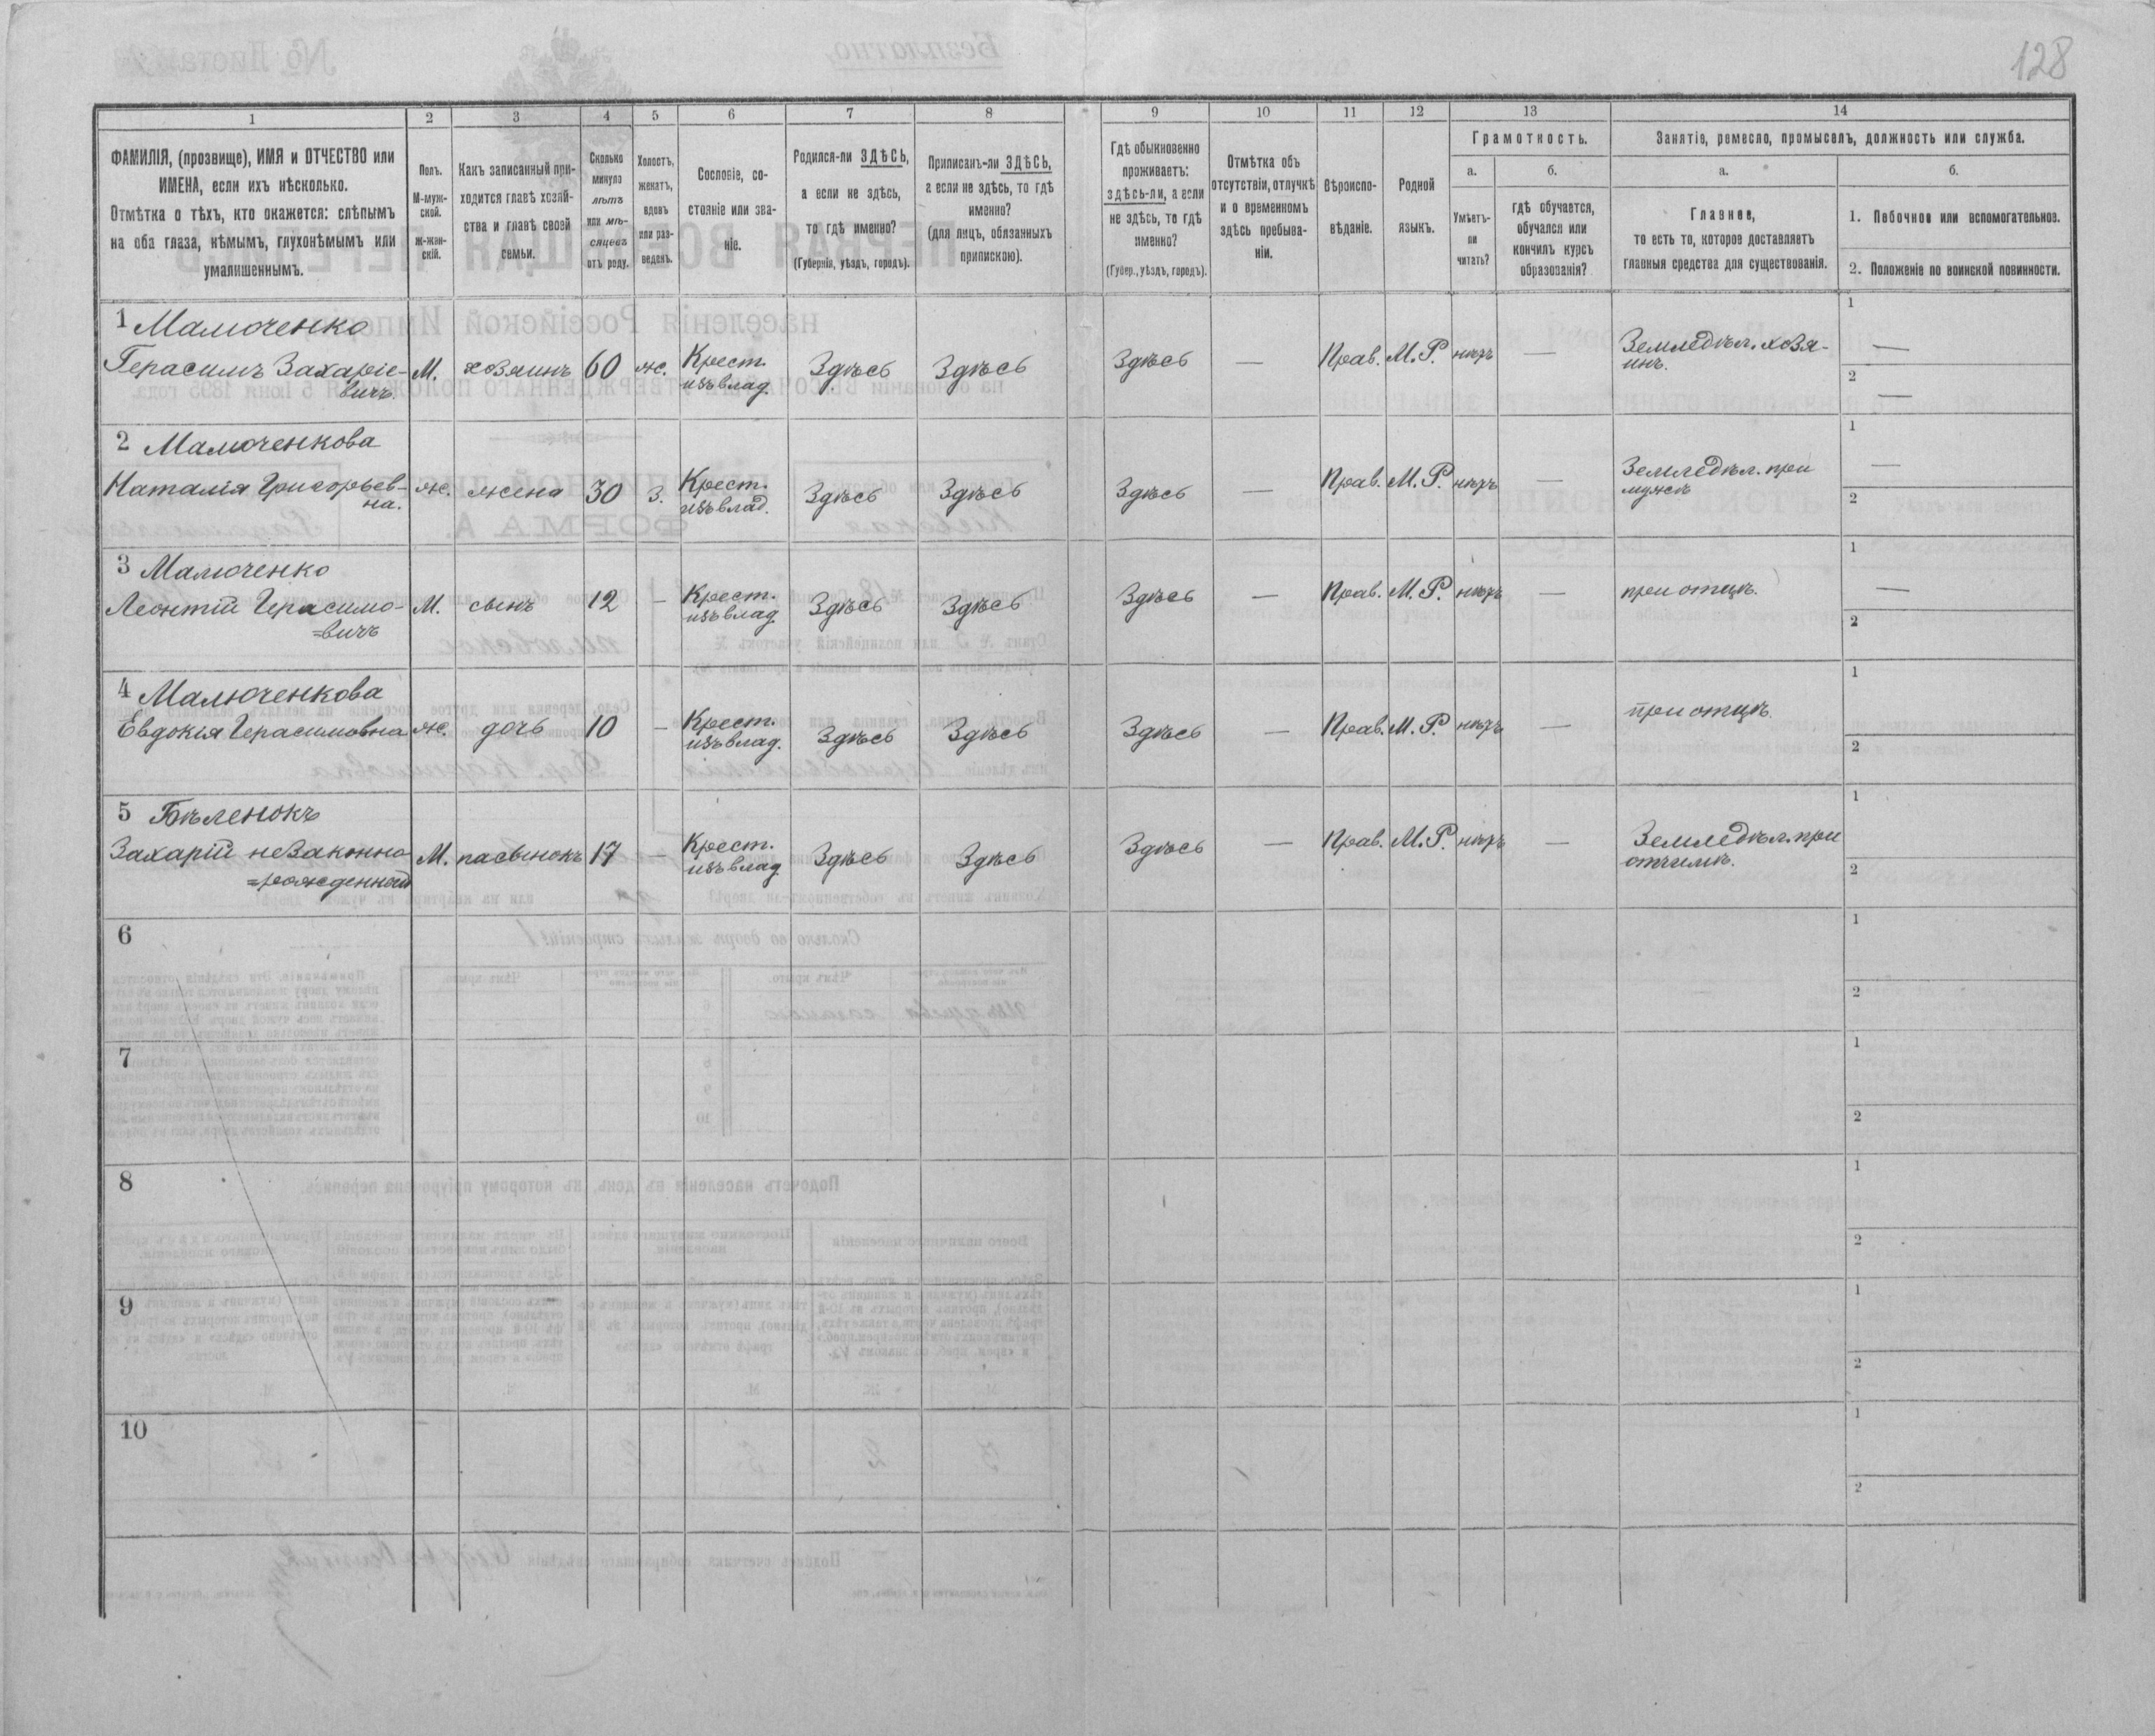 128
1
2
3
4
5
6
7
8
9
10
11
12
13
14
ФАМИЛІЯ, (прозвище), ИМЯ и ОТЧЕСТВО или
ИМЕНА, если ихъ нѣсколько.
Отмѣтка о тѣхъ, кто окажется: слѣпымъ
на оба глаза, нѣмымъ, глухонѣмымъ или
умалишеннымъ.
Полъ.
М-муж-
ской.
Ж-жен-
скій.
Какъ записанный при-
ходится главѣ хозяй-
ства и главѣ своей
семьи.
Сколько
минуло
лѣтъ
или мѣ-
сяцевъ
отъ роду.
Холостъ,
женатъ,
вдовъ
или раз-
веденъ.
Сословіе, со-
стояніе или зва-
ніе.
Родился-ли ЗДѢСЬ,
а если не здѣсь,
то гдѣ именно?
(Губернія, уѣздъ, городъ).
Приписанъ-ли ЗДѢСЬ,
а если не здѣсь, то гдѣ
именно?
(для лицъ, обязанныхъ
припискою).
Гдѣ обыкновенно
проживаетъ:
здѣсь-ли, а если
не здѣсь, то гдѣ
именно?
(Губер., уѣздъ, городъ).
Отмѣтка объ
отсутствіи, отлучкѣ
и о временномъ
здѣсь пребыва-
ніи.
Вѣроиспо-
вѣданіе.
Родной
языкъ.
Грамотность.
а.
б.
Умѣетъ-
ли
читать?
гдѣ обучается,
обучался или
кончилъ курсъ
образованія?
Занятіе, ремесло, промыселъ, должность или служба.
а.
б.
Главное,
то есть то, которое доставляетъ
главныя средства для существованія.
1. Побочное или вспомогательное.
2. Положеніе по воинской повинности.
1 Малюченко
Герасимъ Захаріе-
вичъ.
М.
хозяинъ
60
же.
Крест.
изъ влад.
Здѣсь
Здѣсь
Здѣсь
—
Прав.
М. Р.
нѣтъ
—
Земледѣл. хозя-
инъ.
1
—
2
—
2 Малюченкова
Наталія Григорьев-
на.
же.
жена
30
З.
Крест.
изъ влад.
Здѣсь
Здѣсь
Здѣсь
—
Прав.
М. Р.
нѣтъ
—
Земледѣл. при
мужѣ
1
—
2
3 Малюченко
Леонтій Герасимо-
=вичъ
М.
сынъ
12
—
Крест.
изъ влад.
Здѣсь
Здѣсь
Здѣсь
—
Прав.
М. Р.
нѣтъ
—
при отцѣ.
1
—
2
4 Малюченкова
Евдокія Герасимовна
же.
дочь
10
—
Крест.
изъ влад.
Здѣсь
Здѣсь
Здѣсь
—
Прав.
М. Р.
нѣтъ
—
при отцѣ.
1
2
5 Бѣленокъ
Захарій незаконно
=рожденный
М.
пасынокъ
17
—
Крест.
изъ влад.
Здѣсь
Здѣсь
Здѣсь
—
Прав.
М. Р.
нѣтъ
—
Земледѣл. при
отчимѣ.
1
2
6
1
2
7
1
2
8
1
2
9
1
2
10
1
2